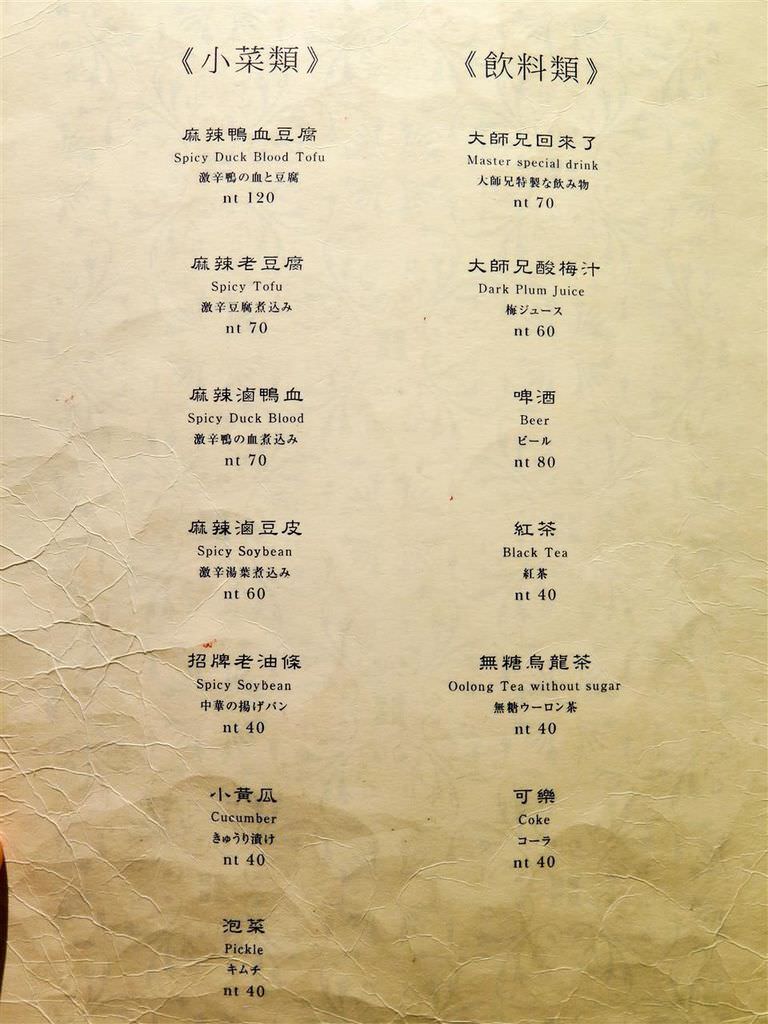 《小菜類》
麻辣鴨血豆腐
Spicy Duck Blood Tofu
激辛鴨の血と豆腐
nt 120
麻辣老豆腐
Spicy Tofu
激辛豆腐煮込み
nt 70
麻辣滷鴨血
Spicy Duck Blood
激辛鴨の血煮込み
nt 70
麻辣滷豆皮
Spicy Soybean
激辛湯葉煮込み
nt 60
招牌老油條
Spicy Soybean
中華の揚げパン
nt 40
小黃瓜
Cucumber
きゅうり漬け
nt 40
泡菜
Pickle
キムチ
nt 40
《飲料類》
大師兄回來了
Master special drink
大師兄特製な飲み物
nt 70
大師兄酸梅汁
Dark Plum Juice
梅ジュース
nt 60
啤酒
Beer
ビール
nt 80
紅茶
Black Tea
紅茶
nt 40
無糖烏龍茶
Oolong Tea without sugar
無糖ウーロン茶
nt 40
可樂
Coke
コーラ
nt 40